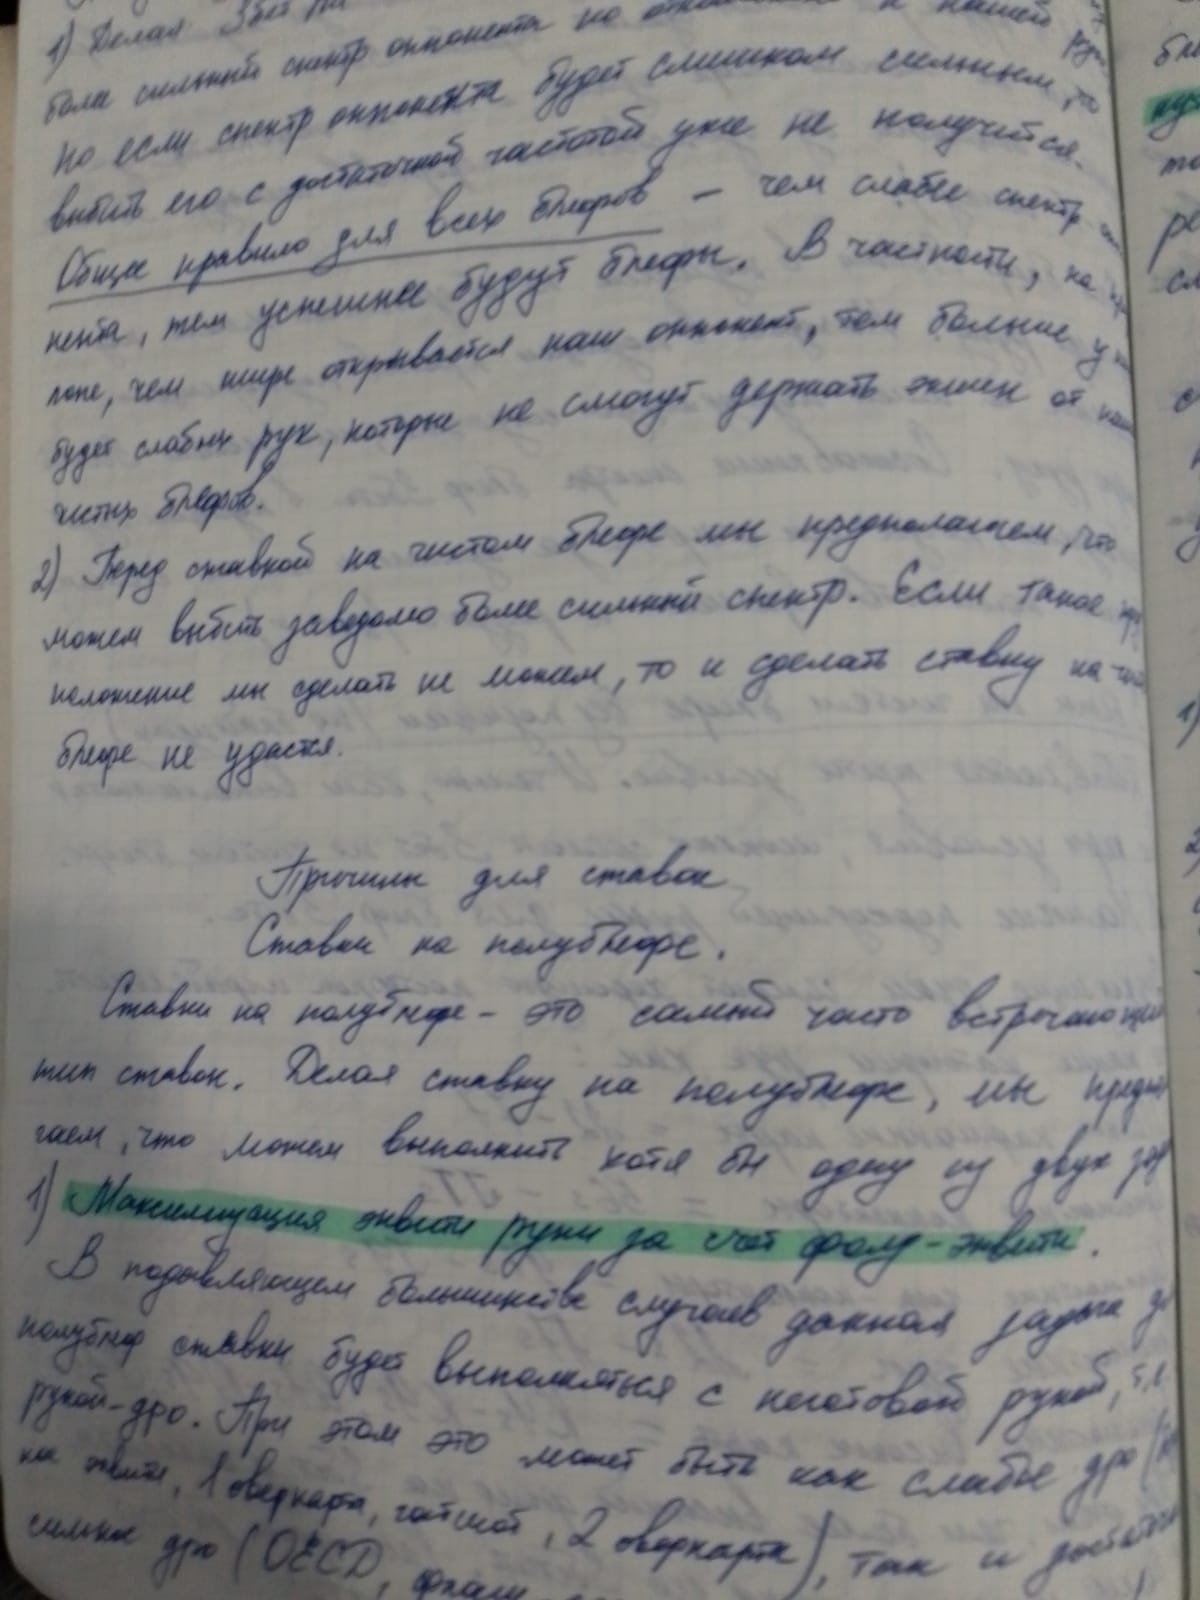 1) Делая 3бет
более сильный спектр оппонента по отношению к нашей
Но если спектр оппонента будет слишком сильным, то
выбить его с достаточной частотой уже не получится.
Общее правило для всех блефов – чем слабее спектр
нента, тем успешнее будут блефы. В частности, на
лопе, чем шире открывается наш оппонент, тем больше у
будет слабых рук, которые не смогут держать экшен от
чистых блефов.
2) Перед ставкой на чистом блефе мы предполагаем, что
можем выбить заведомо более сильный спектр. Если такое
положение мы сделать не можем, то и сделать ставку на
блефе не удастся.
Причины для ставок
Ставки на полублефе.
Ставки на полублефе – это самый часто встречающий
тип ставок. Делая ставку на полублефе, мы предпола
гаем, что можем выполнить хотя бы одну из двух
1) Максимизация эквити руки за счёт фолд-эквити.
В подавляющем большинстве случаев данная задача
полублеф ставки будет выполняться с неготовой рукой, т.е.
рукой-дро. При этом это может быть как слабые дро
эквити, 1 оверкарта, гатшот, 2 оверкарты), так и достаточно
сильные дро (OESD, флаш